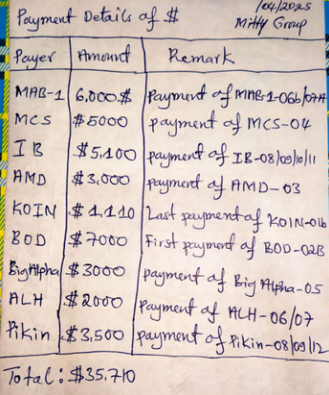 Payment Details of $ /04/2025
Mitty Group
Payer Amount Remark
MAB-1 6,000$ Payment of MAB-1-06b/07A
MCS $5000 payment of MCS-04
IB $5,100 payment of IB-08/09/10/11
AMD $3,000 payment of AMD-03
KOIN $1,110 Last payment of KOIN-01b
BOD $7000 First payment of BOD-02B
BigAlpha $3000 payment of Big Alpha-05
ALH $2000 Payment of ALH-06/07
Pikin $3,500 payment of Pikin-08/09/12
Total: $35.710